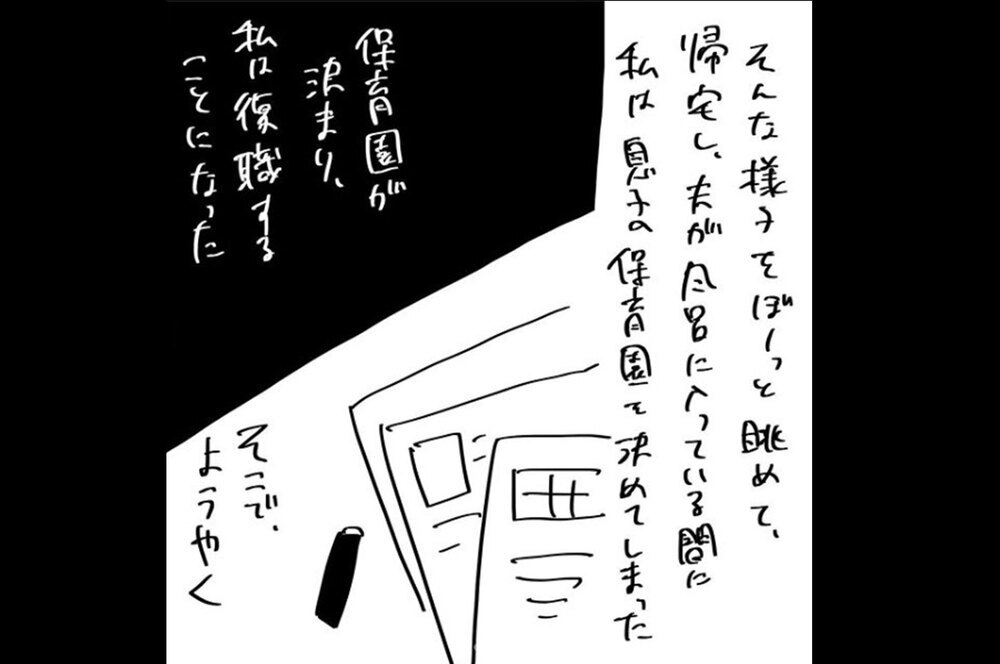 そんな様子をぼーっと眺めて、
帰宅し、夫が風呂に入っている間に
私は息子の保育園を決めてしまった
保育園が
決まり、
私は復職する
ことになった
そこで、
ようやく